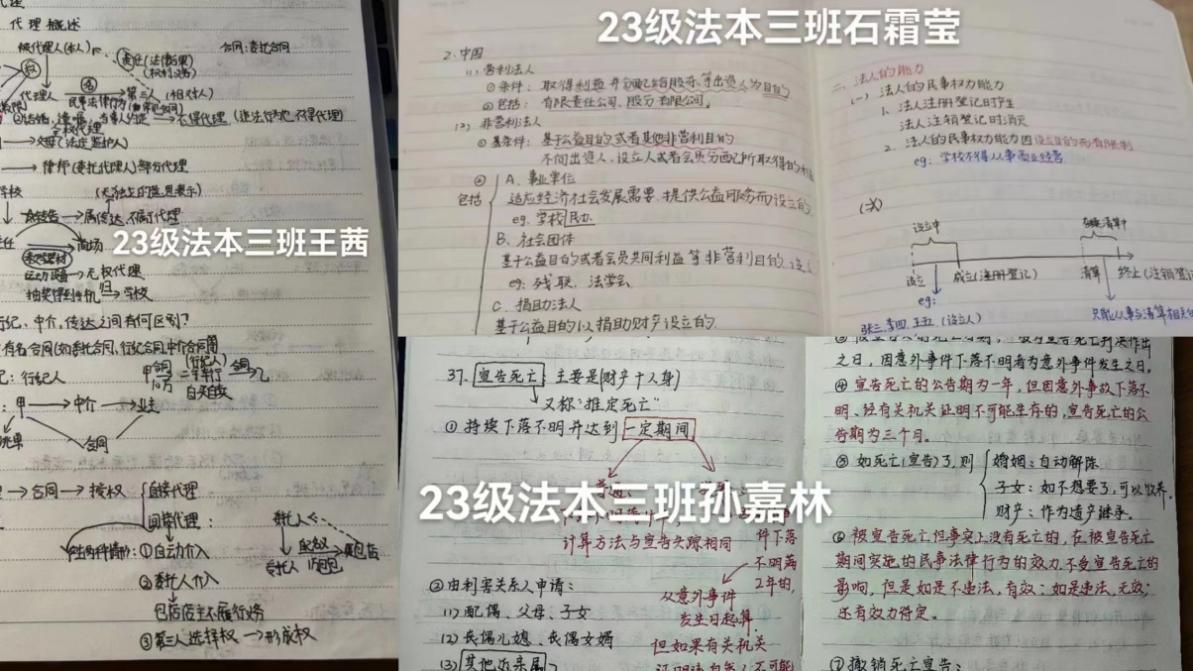 代理概述
被代理人(本人)
合同:委托合同
责任(法律后果)
(权利义务)
代理人
第三人(相对人)
民事法律行为
不得代理(违法行为也不得代理)
父母(法定监护人)
律师(委托代理人)部分代理
学校
属传达,不属于代理
商场
23级法本三班王茜
无权代理
抽奖得到手机
学校
行纪、中介、传达之间有何区别?
有名合同(如委托合同、行纪合同、中介合同
行纪人
(行纪人)
甲
合同
10万
乙
自买自卖
甲
中介
业主
合同
合同
授权
直接代理
间接代理:
①自动介入
委托人
②委托人介入
③第三人选择权
形成权
23级法本三班石霜莹
2.中国
(1)营利法人
①条件:取得利益并分配给股东等出资人为目的
②包括:有限责任公司、股份有限公司。
(2)非营利法人
①条件:基于公益目的或者其他非营利目的
不向出资人、设立人或者会员分配所取得的
②
包括
A.事业单位
适应经济社会发展需要,提供公益服务而设立的
eg.学校
民办
B.社会团体
基于公益目的或者会员共同利益等非营利目的设立
eg.残联、法学会
C.捐助法人
基于公益目的以捐助财产设立的
二、法人的能力
(一)法人的民事权力能力
1.法人注册登记时产生
法人注销登记时消灭
2.法人的民事权力能力因设立目的而有限制
eg:学校不得从事商业经营
设立中
清算中
设立
成立(注册登记)
清算
终止(注销登记
eg:
张三、李四、王五(设立人)
只能从事与清算相关的
37.宣告死亡:主要是(财产+人身)
又称"推定死亡"
①持续下落不明并达到一定期间
23级法本三班孙嘉林
计算方法与宣告失踪相同
件下落
不明满
2年的,
从意外事件
发生日起算.
但如果有关机关
②由利害关系人申请:
(1)配偶、父母、子女
(2)丧偶儿媳、丧偶女婿
(3)其他近亲属
之日,因意外事件下落不明者为意外事件发生之日。
④宣告死亡的公告期为一年,但因意外事故下落不
明、经有关机关证明不可能生存的,宣告死亡的公
告期为三个月。
⑤如死亡(宣告)了,则
婚姻:自动解除
子女:如不想要了,可以收养.
财产:作为遗产继承.
⑥被宣告死亡但事实上没有死亡的,在被宣告死亡
期间实施的民事法律行为的效力不受宣告死亡的
影响,但是如是不违法,有效;如是违法,无效;
还有效力待定。
⑦撤销死亡宣告: